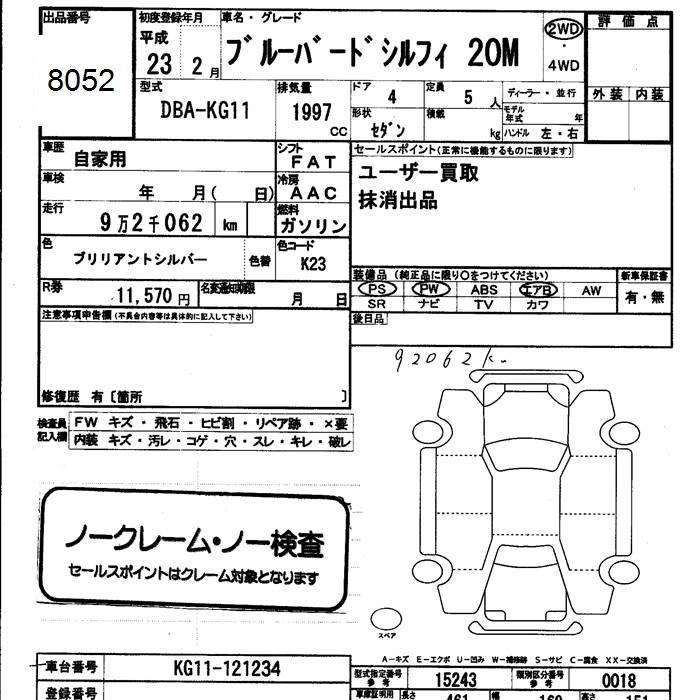 出品番号
8052
初度登録年月
平成
23 2月
車名・グレード
ブルーバードシルフィ 20M
2WD
・
4WD
評価点
外装 内装
型式
DBA-KG11
排気量
1997
CC
ドア 4
定員 5 人
ディーラー・並行
モデル年式 年
形状 セダン
積載 kg
ハンドル 左・右
車歴
自家用
シフト
FAT
セールスポイント(正常に機能するものに限ります)
ユーザー買取
抹消出品
車検
年 月( 日)
冷房
AAC
走行
9万2千062 km
燃料
ガソリン
色
ブリリアントシルバー
色替
色コード
K23
装備品(純正品に限り○をつけてください)
新車保証書
PS PW ABS エアB AW
SR ナビ TV カワ
有・無
R券
11,570 円
名変通知期限
月 日
注意事項申告欄(不具合内容等は具体的に記入して下さい)
後日品
92062k
修復歴 有[箇所 ]
検査員
記入欄
FW キズ・飛石・ヒビ割・リペア跡・×要
内装 キズ・汚レ・コゲ・穴・スレ・キレ・破レ
ノークレーム・ノー検査
セールスポイントはクレーム対象となります
スペア
A-キズ E-エクボ U-凹み W-補修跡 S-サビ C-腐食 XX-交換済
車台番号
KG11-121234
型式指定番号
参考
15243
類別区分番号
参考
0018
登録番号
車庫証明用
長さ 461 幅 169 高さ 151